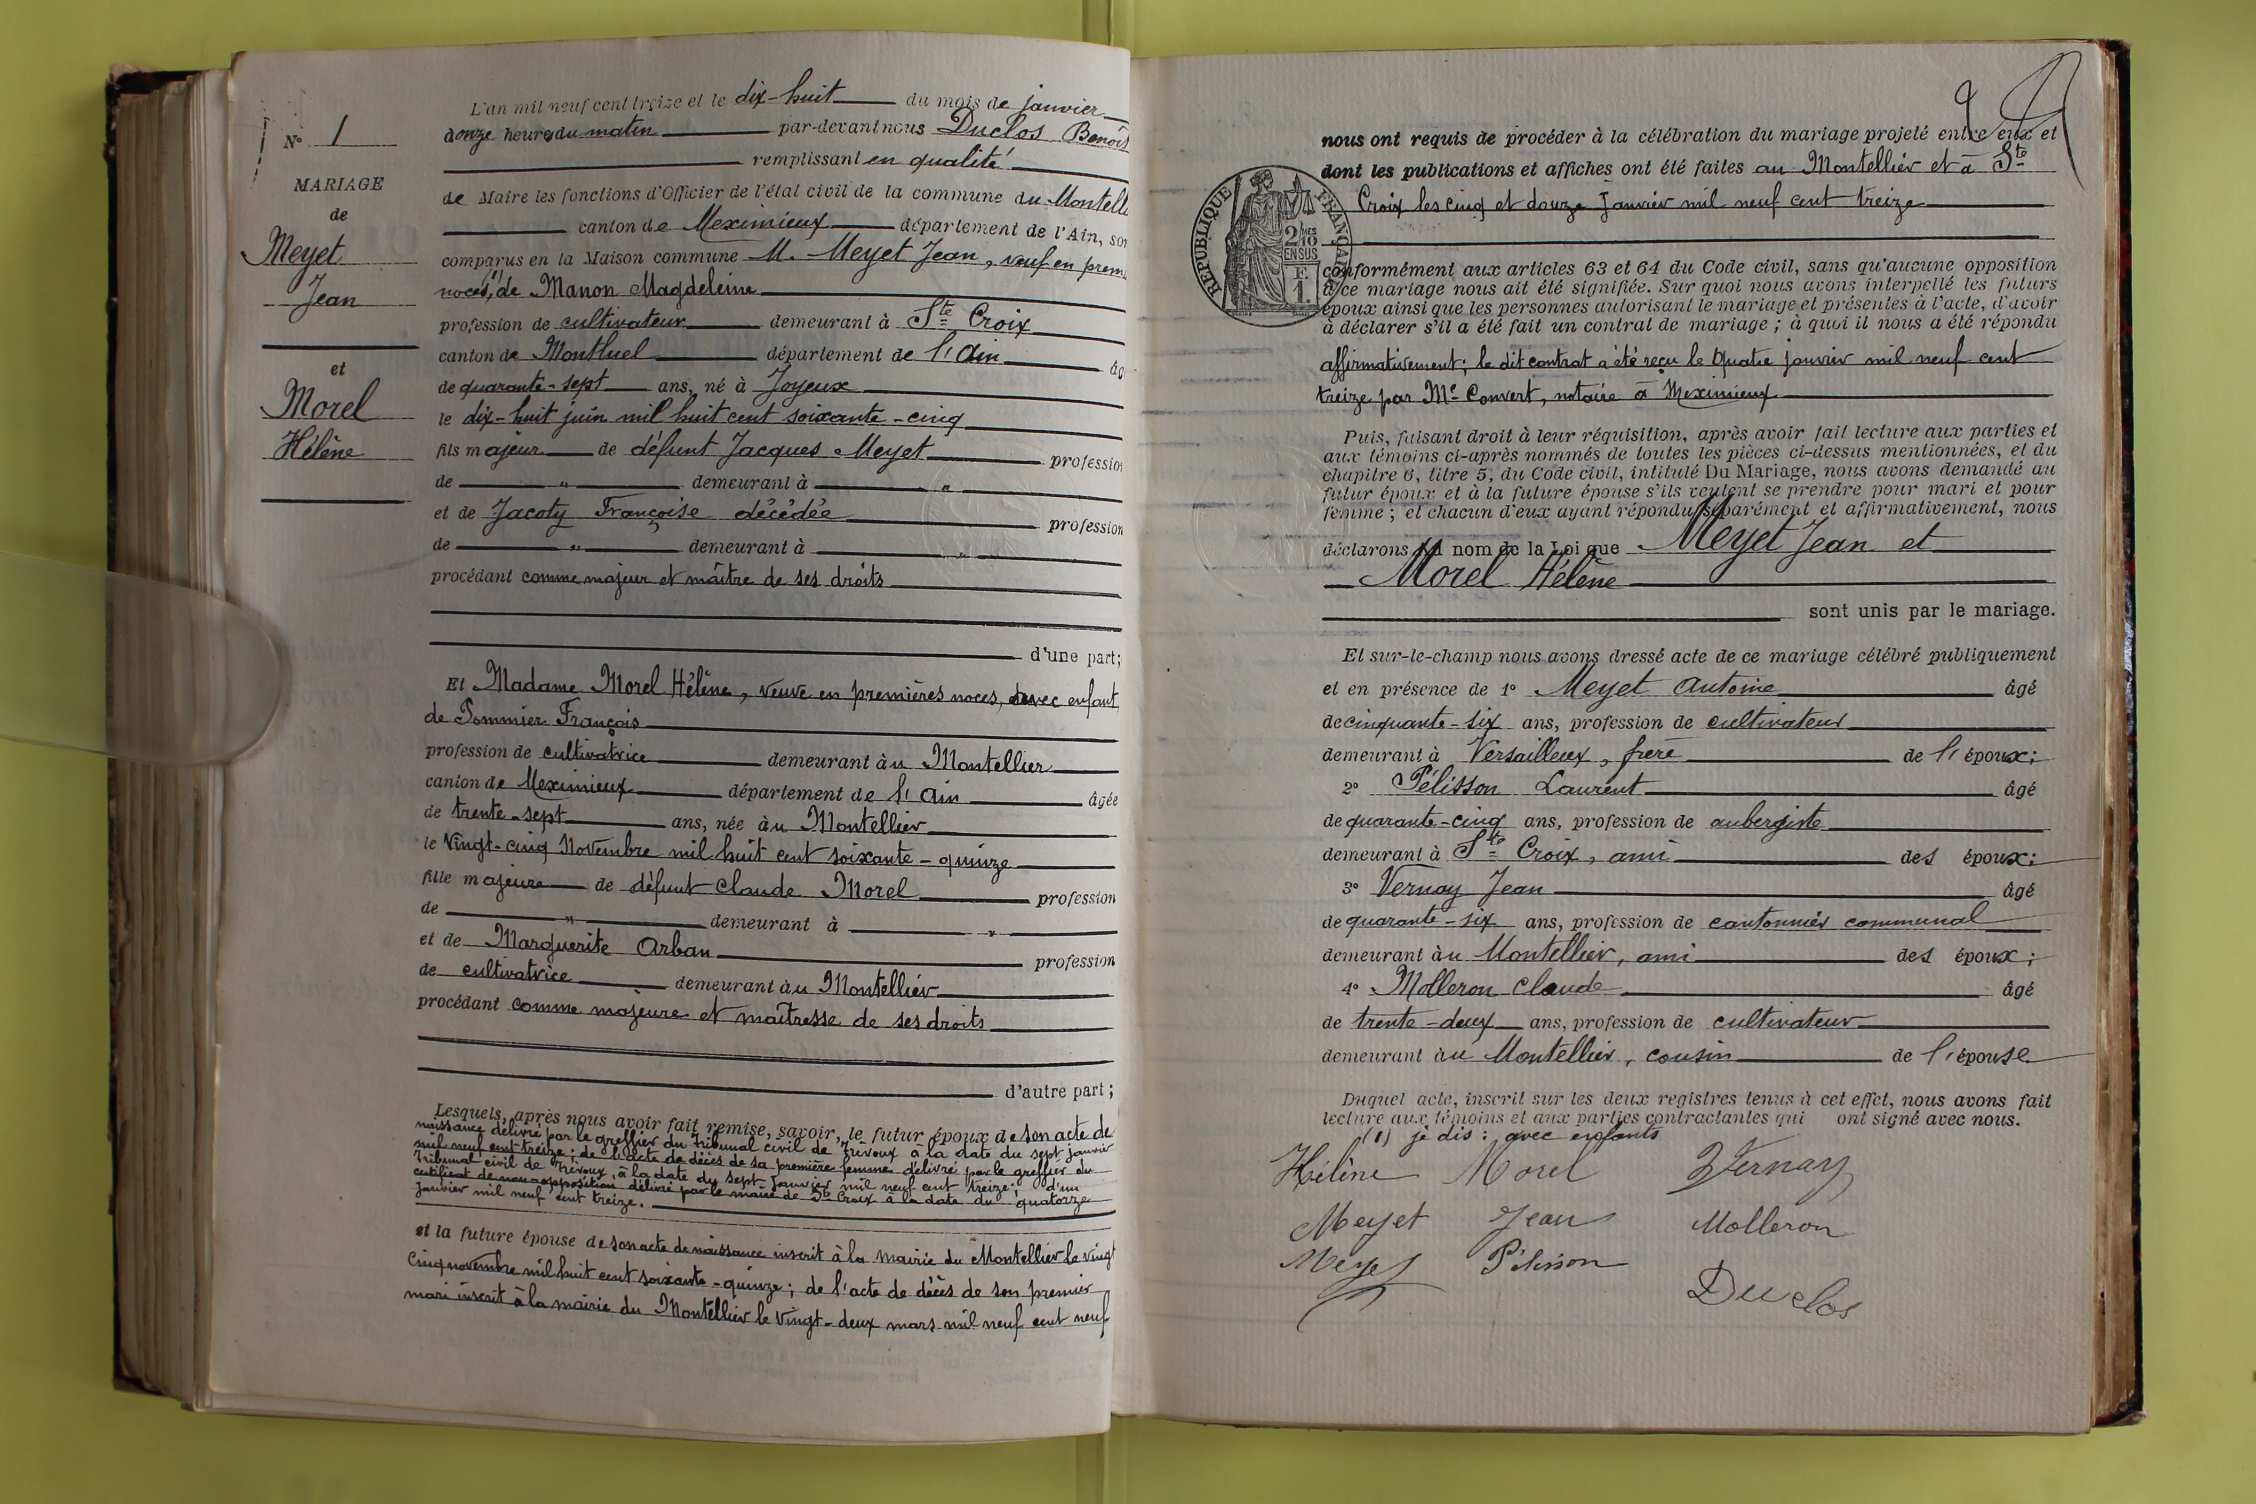 N° 1
MARIAGE
de
Meyet
Jean
et
Morel
Hélène
L'an mil neuf cent treize et le dix-huit du mois de janvier
à onze heures du matin par-devant nous Duclos Benoît
remplissant en qualité
de Maire les fonctions d'Officier de l'état civil de la commune du Montell
canton de Meximieux département de l'Ain, son
comparus en la Maison commune M. Meyet Jean, veuf en prem
noces, (1) de Manon Magdeleine
profession de cultivateur demeurant à Ste Croix
canton de Montluel département de l'Ain âg
de quarante-sept ans, né à Joyeux
le dix-huit juin mil huit cent soixante-cinq
fils majeur de défunt Jacques Meyet profession
de " demeurant à "
et de Jacoty Françoise décédée profession
de " demeurant à "
procédant comme majeur et maître de ses droits
d'une part;
Et Madame Morel Hélène, veuve en premières noces, avec enfant
de Pommier François
profession de cultivatrice demeurant au Montellier
canton de Meximieux département de l'Ain âgée
de trente-sept ans, née au Montellier
le vingt-cinq Novembre mil huit cent soixante-quinze
fille majeure de défunt Claude Morel profession
de " demeurant à "
et de Marguerite Arban profession
de cultivatrice demeurant au Montellier
procédant comme majeure et maîtresse de ses droits
d'autre part;
Lesquels, après nous avoir fait remise, savoir, le futur époux de son acte de
naissance délivré par le greffier du Tribunal civil de Trévoux à la date du sept janvier
mil neuf cent treize; de l'acte de décès de sa première femme délivré par le greffier du
Tribunal civil de Trévoux à la date du sept Janvier mil neuf cent treize; d'un
certificat de non opposition délivré par le maire de Ste Croix à la date du quatorze
Janvier mil neuf cent treize.
et la future épouse de son acte de naissance inscrit à la mairie du Montellier le vingt
cinq novembre mil huit cent soixante-quinze; de l'acte de décès de son premier
mari inscrit à la mairie du Montellier le vingt-deux mars mil neuf cent neuf
nous ont requis de procéder à la célébration du mariage projeté entre eux et
dont les publications et affiches ont été faites au Montellier et à Ste
Croix les cinq et douze Janvier mil neuf cent treize
RÉPUBLIQUE FRANÇAISE
2/10 EN SUS
F.
1.
conformément aux articles 63 et 64 du Code civil, sans qu'aucune opposition
à ce mariage nous ait été signifiée. Sur quoi nous avons interpellé les futurs
époux ainsi que les personnes autorisant le mariage et présentes à l'acte, d'avoir
à déclarer s'il a été fait un contrat de mariage; à quoi il nous a été répondu
affirmativement; le dit contrat a été reçu le quatre janvier mil neuf cent
treize par Me Convert, notaire à Meximieux
Puis, faisant droit à leur réquisition, après avoir fait lecture aux parties et
aux témoins ci-après nommés de toutes les pièces ci-dessus mentionnées, et du
chapitre 6, titre 5, du Code civil, intitulé Du Mariage, nous avons demandé au
futur époux et à la future épouse s'ils veulent se prendre pour mari et pour
femme; et chacun d'eux ayant répondu séparément et affirmativement, nous
déclarons au nom de la Loi que Meyet Jean et
Morel Hélène
sont unis par le mariage.
Et sur-le-champ nous avons dressé acte de ce mariage célébré publiquement
et en présence de 1° Meyet Antoine âgé
de cinquante-six ans, profession de cultivateur
demeurant à Versailleux, frère de l'époux;
2° Pélisson Laurent âgé
de quarante-cinq ans, profession de aubergiste
demeurant à Ste Croix, ami des époux;
3° Vernay Jean âgé
de quarante-six ans, profession de cantonnier communal
demeurant au Montellier, ami des époux;
4° Molleron Claude âgé
de trente-deux ans, profession de cultivateur
demeurant au Montellier, cousin de l'épouse
Duquel acte, inscrit sur les deux registres tenus à cet effet, nous avons fait
lecture aux témoins et aux parties contractantes qui ont signé avec nous.
(1) je dis: avec enfants
Hélène Morel Vernay
Meyet Jean Molleron
Meyet Pélisson
Duclos